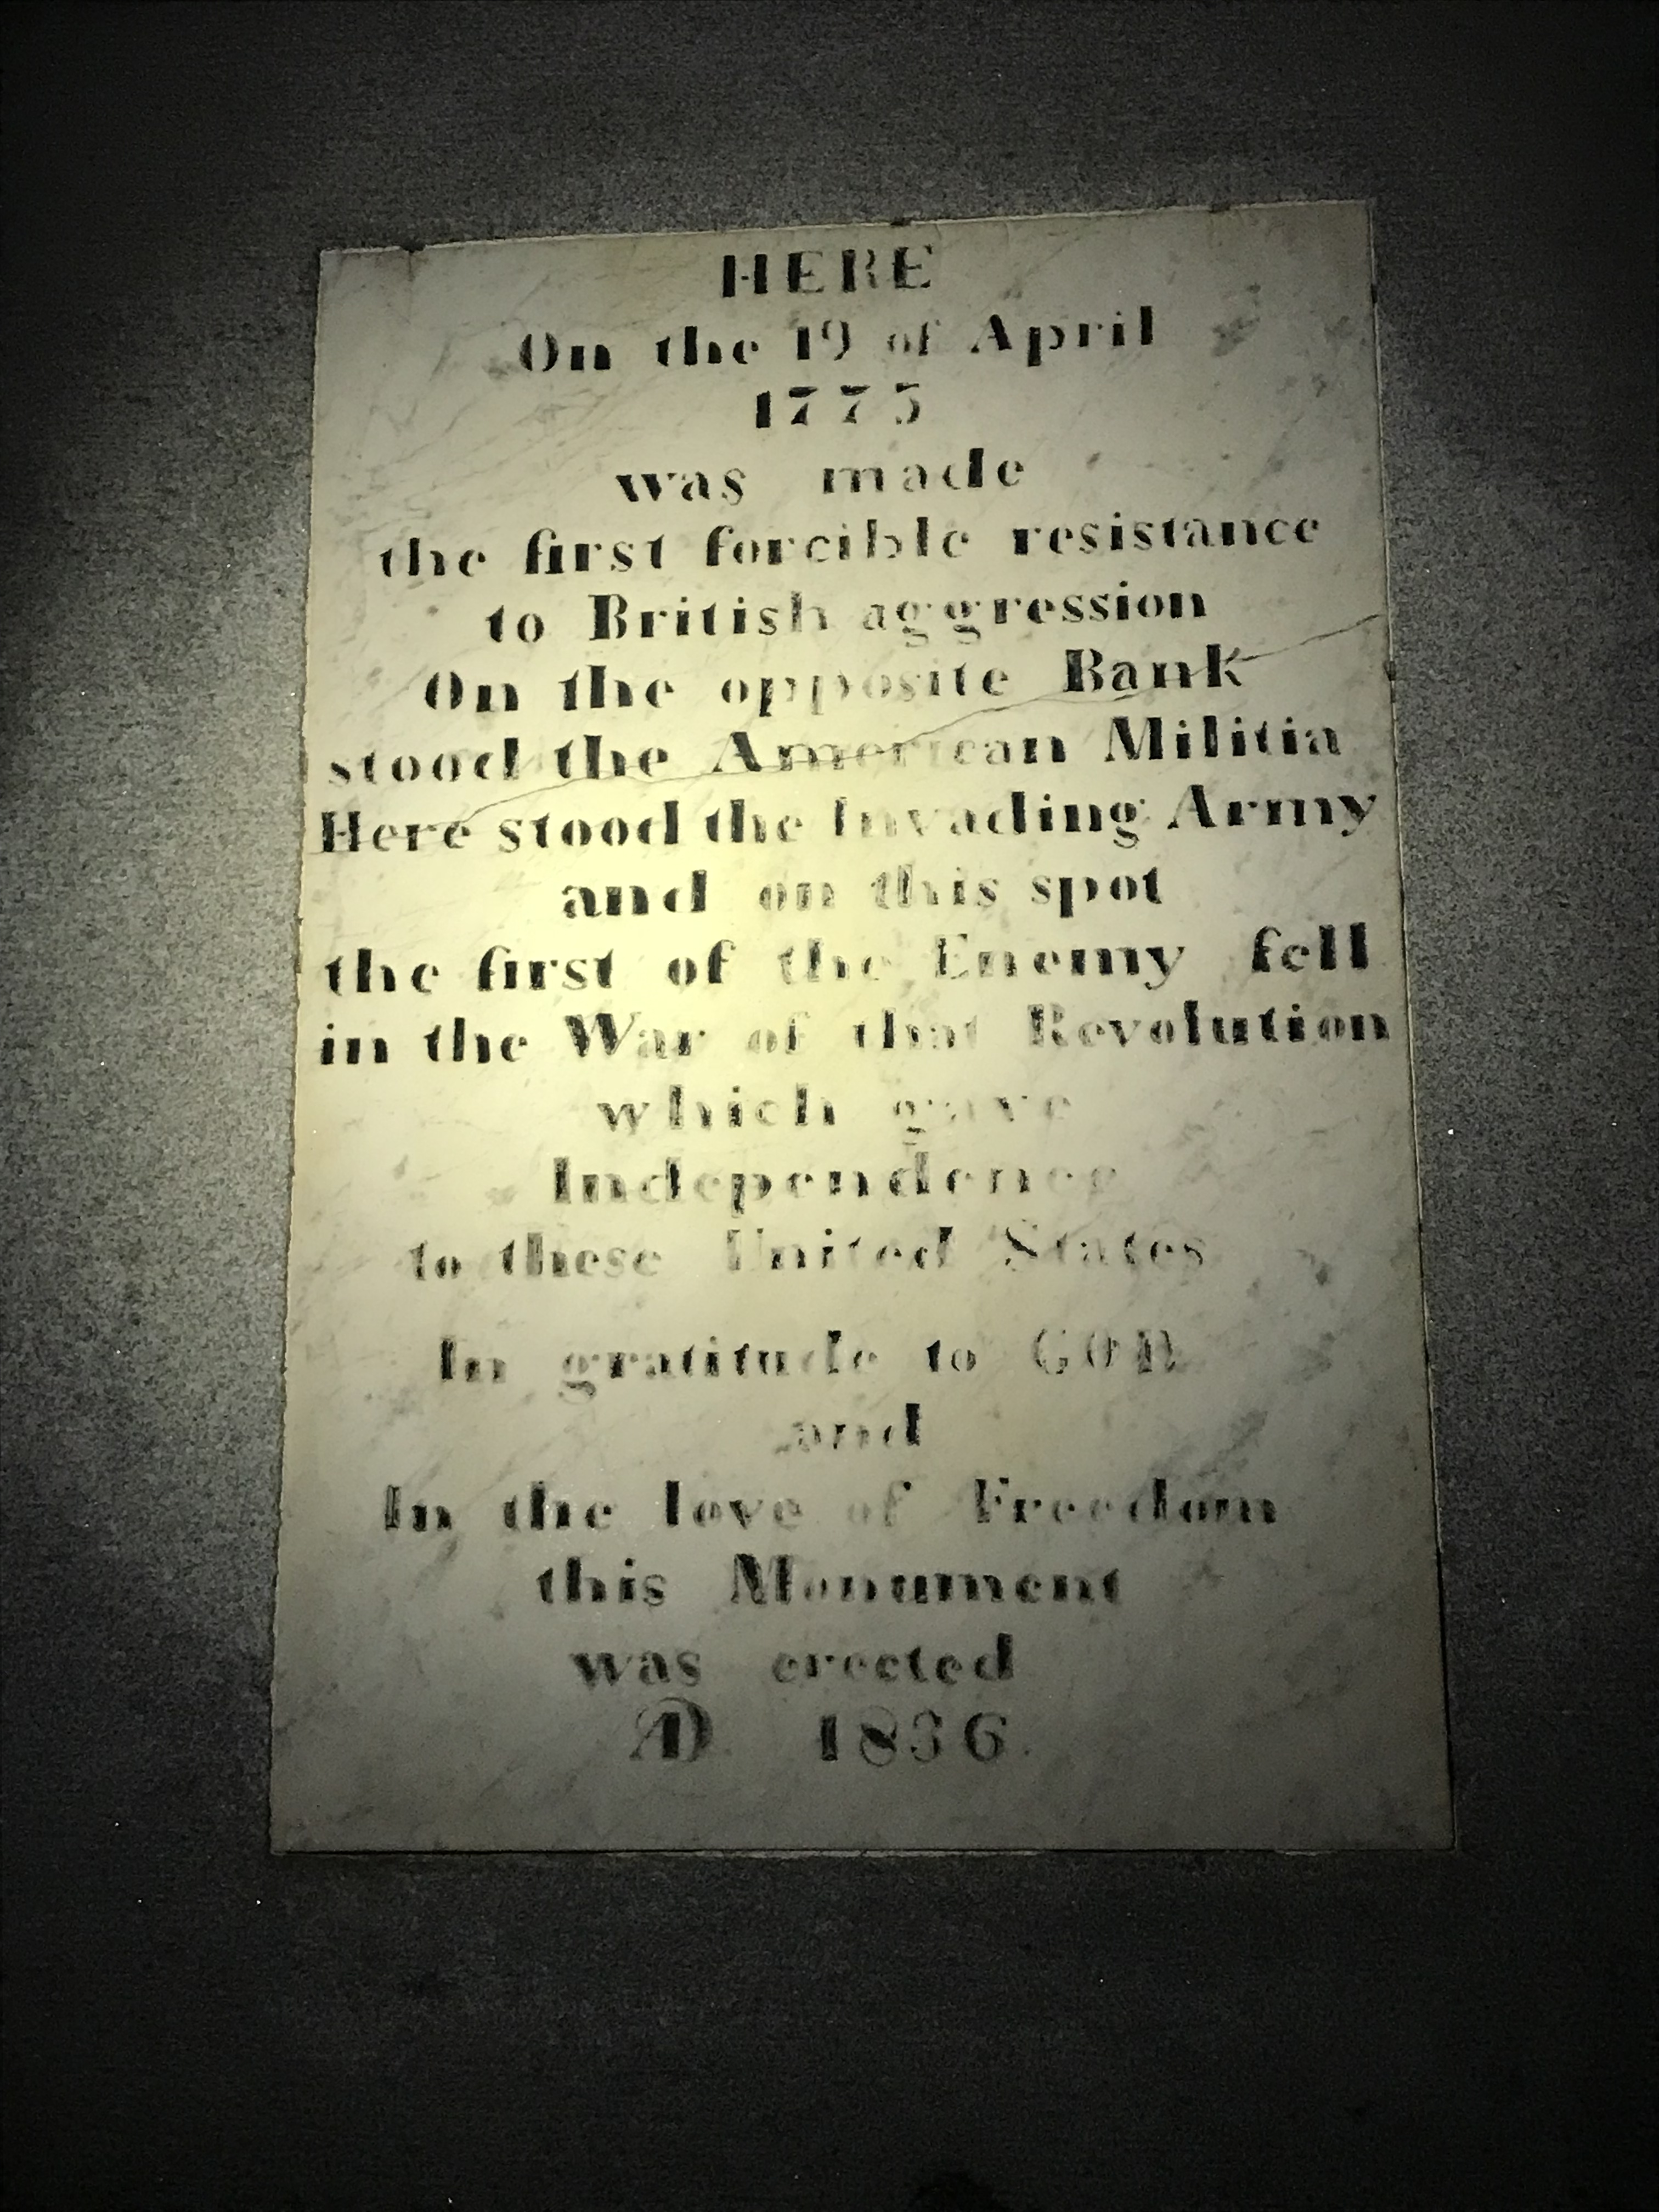 HERE
On the 19 of April
1775
was made
the first forcible resistance
to British aggression
On the opposite Bank
stood the American Militia
Here stood the Invading Army
and on this spot
the first of the Enemy fell
in the War of that Revolution
which gave
Independence
to these United States
In gratitude to GOD
and
In the love of Freedom
this Monument
was erected
AD. 1836.